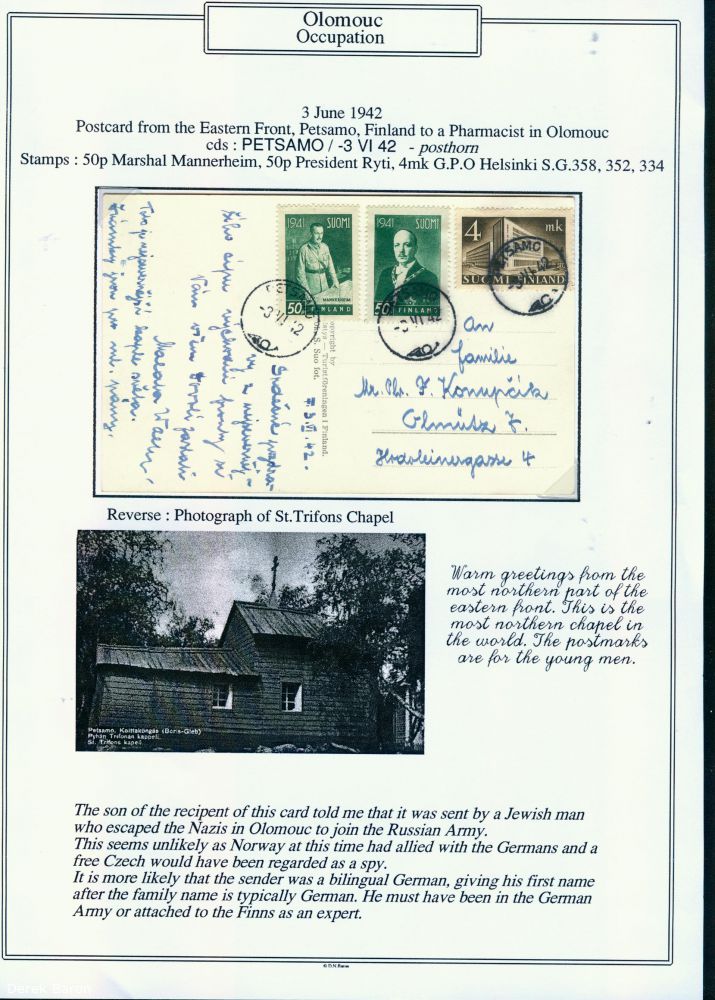 Olomouc
Occupation
3 June 1942
Postcard from the Eastern Front, Petsamo, Finland to a Pharmacist in Olomouc
cds : PETSAMO / -3 VI 42 - posthorn
Stamps : 50p Marshal Mannerheim, 50p President Ryti, 4mk G.P.O Helsinki S.G.358, 352, 334
1941 SUOMI
MANNERHEIM
50 FINLAND
1941 SUOMI
50 FINLAND
4 mk
SUOMI FINLAND
PETSAMO
-3 VI 42
PETSAMO
-3 VI 42
PETSAMO
-3 VI 42
7. 3. VI. 42.
Srdečné
opyright by
Turistföreningen i Finland.
S. Suo fot.
An
Familie
Mr. Phr. F. Konupčik
Olmütz I.
Hodoleinergasse 4
Reverse : Photograph of St.Trifons Chapel
Petsamo, Kolttaköngäs (Boris-Gleb)
Pyhän Trifonas kappeli.
St. Trifons kapell.
Warm greetings from the
most northern part of the
eastern front. This is the
most northern chapel in
the world. The postmarks
are for the young men.
The son of the recipent of this card told me that it was sent by a Jewish man
who escaped the Nazis in Olomouc to join the Russian Army.
This seems unlikely as Norway at this time had allied with the Germans and a
free Czech would have been regarded as a spy.
It is more likely that the sender was a bilingual German, giving his first name
after the family name is typically German. He must have been in the German
Army or attached to the Finns as an expert.
© D.N.Baron
Derek Baron